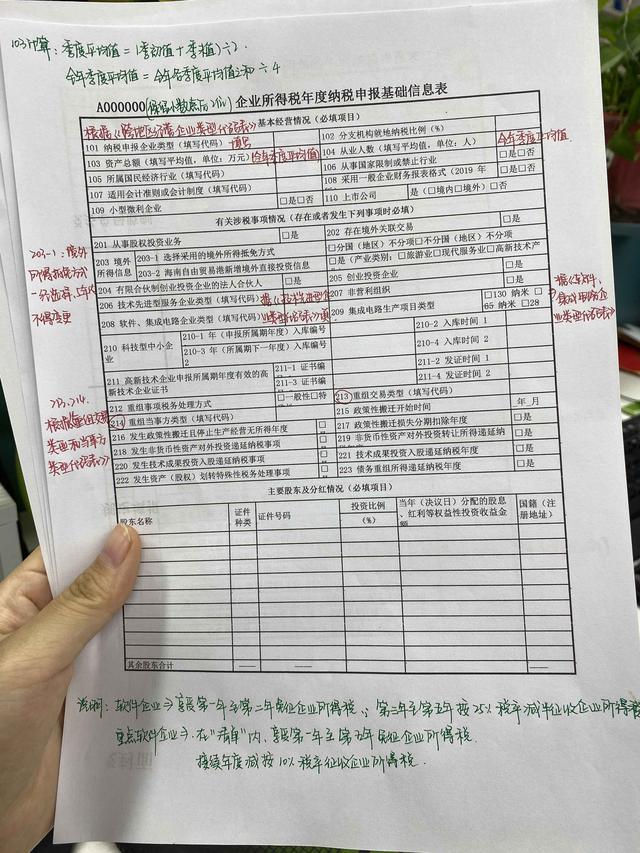 103计算：季度平均值＝(季初值＋季末值)÷2.
全年季度平均值＝全年各季度平均值之和÷4
A000000(保留小数点后2位) 企业所得税年度纳税申报基础信息表
基本经营情况（必填项目）
根据《跨地区 企业类型代码表》
101 纳税申报企业类型（填写代码）
102 分支机构就地纳税比例（%）
103 资产总额（填写平均值，单位：万元）(全年季度平均值)
104 从业人数（填写平均值，单位：人） 全年季度平均值
105 所属国民经济行业（填写代码）
106 从事国家限制或禁止行业 □是□否
107 适用会计准则或会计制度（填写代码）
108 采用一般企业财务报表格式（2019 年 □是□否
109 小型微利企业 □是□否
110 上市公司 是（□境内□境外）□否
有关涉税事项情况（存在或者发生下列事项时必填）
201 从事股权投资业务 □是
202 存在境外关联交易 □是
203 境外所得信息
203-1 选择采用的境外所得抵免方式 □分国（地区）不分项□不分国（地区）不分项
203-2 海南自由贸易港新增境外直接投资信息 □是（产业类别：□旅游业□现代服务业□高新技术产
203-1：境外
所得抵免方式
一经选择，5年内
不得变更
204 有限合伙制创业投资企业的法人合伙人 □是
205 创业投资企业 □是
206 技术先进型服务企业类型（填写代码）
207 非营利组织 □是
208 软件、集成电路企业类型（填写代码）
209 集成电路生产项目类型 □130 纳米 □65 纳米 □28
210 科技型中小企业
210-1 年（申报所属期年度）入库编号
210-2 入库时间 1
210-3 年（所属期下一年度）入库编号
210-4 入库时间 2
211 高新技术企业申报所属期年度有效的高新技术企业证书
211-1 证书编
211-2 发证时间 1
211-3 证书编
211-4 发证时间 2
213、214.
根据《重组交易
类型和当事方
类型代码表》
212 重组事项税务处理方式 □一般性□特
213 重组交易类型（填写代码）
214 重组当事方类型（填写代码）
215 政策性搬迁开始时间 年 月
216 发生政策性搬迁且停止生产经营无所得年度 □是
217 政策性搬迁损失分期扣除年度 □是
218 发生非货币性资产对外投资递延纳税事项 □是
219 非货币性资产对外投资转让所得递延纳 □是
220 发生技术成果投资入股递延纳税事项 □是
221 技术成果投资入股递延纳税年度 □是
222 发生资产（股权）划转特殊性税务处理事项 □是
223 债务重组所得递延纳税年度 □是
主要股东及分红情况（必填项目）
股东名称
证件种类
证件号码
投资比例（%）
当年（决议日）分配的股息、红利等权益性投资收益金
国籍（注册地址）
其余股东合计 —— ——  ——
说明：软件企业⇒享受第一年至第二年免征企业所得税；第三年至第五年按25%税率减半征收企业所得税
重点软件企业⇒.在"清单"内，享受第一年至第五年免征企业所得税.
接续年度减按10%税率征收企业所得税.